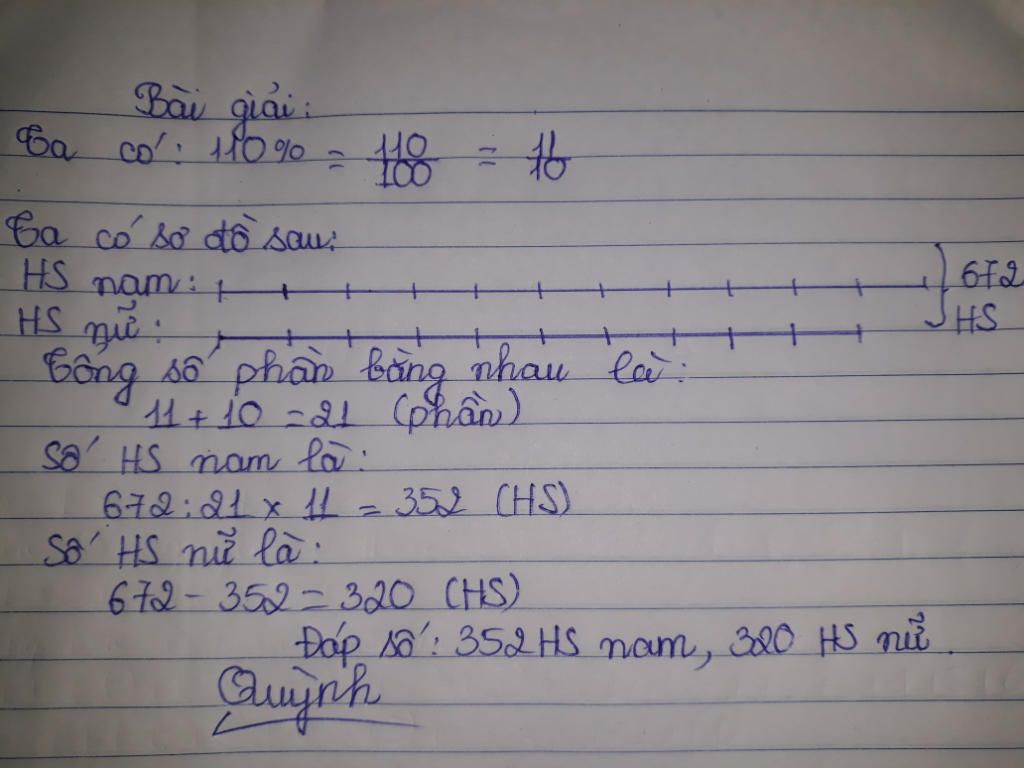 Bài giải:
Ta có: 110% = 110/100 = 11/10
Ta có sơ đồ sau:
HS nam: 672
HS nữ: HS
Tổng số phần bằng nhau là:
11 + 10 = 21 (phần)
Số HS nam là:
672 : 21 x 11 = 352 (HS)
Số HS nữ là:
672 - 352 = 320 (HS)
Đáp số: 352 HS nam, 320 HS nữ.
Quỳnh